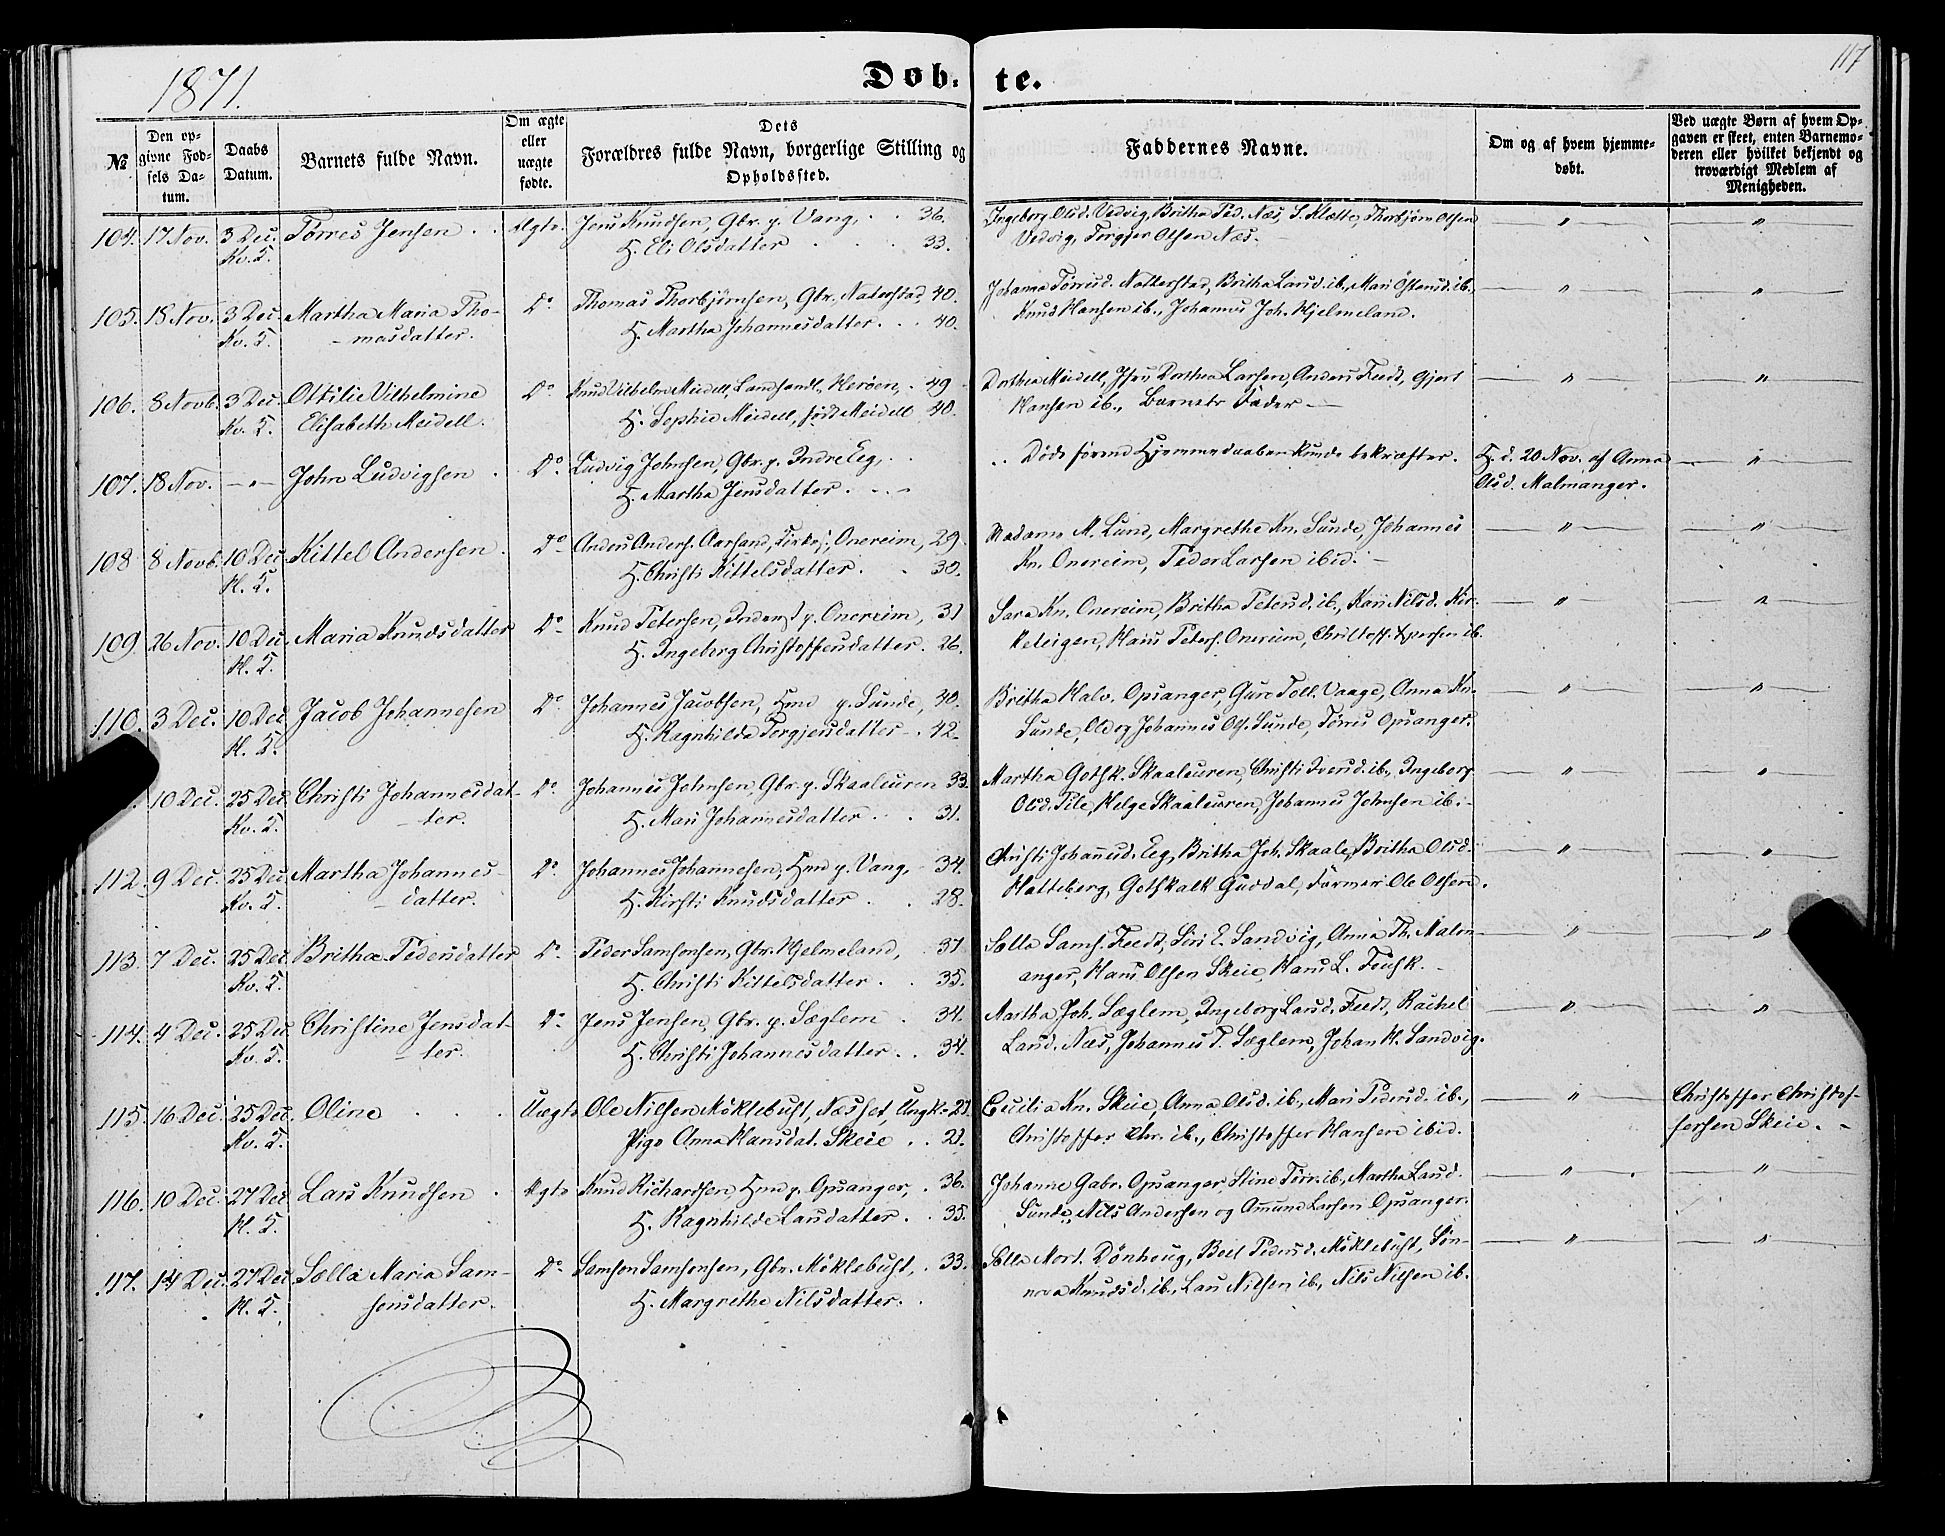 1871.
Døb-te.
117
№
Den opgivne Fødsels Datum.
Daabs Datum.
Barnets fulde Navn.
Om ægte eller uægte fødte.
Dets Forældres fulde Navn, borgerlige Stilling og Opholdssted.
Faddernes Navne.
Om og af hvem hjemmedøbt.
Ved uægte Børn af hvem Opgaven er skeet, enten Barnemoderen eller hvilket bekjendt og troværdigt Medlem af Menigheden.
104. 17 Nov. 3 Dec. Tørres Jensen Ægte Jens Knudsen, Gbr. p. Vang, 36. Ingeborg Olsd. Vedvig, Britha Ped. Næs, S. Klette, Thorbjørn Olsen — " — — " —
Kv. T. H. Eli Olsdatter 33. Vedvig, Torgjer Olsen Næs.
105. 18 Nov. 3 Dec. Martha Maria Tho- Do Thomas Thorbjørnsen, Gbr. Naterstad 40. Johanna Tørrisd. Natterstad, Britha Larsd. ib., Mari Østensd. ib., — " — — " —
Kv. T. -masdatter. H. Martha Johannesdatter. 40. Knud Hansen ib., Johannes Joh. Hjelmeland.
106. 8 Novb. 3 Dec. Ottilie Vilhelmine Do Knud Vilhelm Meidell, Landhandl., Herøen, 49 Dorthea Meidell, Dorthea Larsen, Anders Feedt, Gjert — " — — " —
Kv. T. Elisabeth Meidell. H. Sophie Meidell, født Meidell 40. Hansen ib., Barnets Fader —
107. 18 Nov. — " — John Ludvigsen Do Ludvig Johnsen, Gbr. p. Indre Eeg, Døde førend Hjemmedaaben kunde bekræftes. H. d. 20 Nov. af Anna — " —
H. Martha Jensdatter. Olsd. Malmanger.
108 8 Novb. 10 Dec. Kittel Andersen Do Anders Anders. Aarsand, Onereim, 29. Madame M. Lund, Margrethe Kn. Sunde, Johannes — " — — " —
H. T. H. Christi Kittelsdatter. 30. Kn. Onereim, Peder Larsen ibid. —
109. 26 Nov. 10 Dec. Maria Knudsdatter Do Knud Petersen, Inderst p. Onereim, 31 Sara Kn. Onereim, Britha Petersd. ib., Kari Nilsd. Kir- — " — — " —
H. T. H. Ingeborg Christoffersdatter. 26. keteigen, Hans Peters. Onereim, Christoff. ib.
110. 3 Dec. 10 Dec. Jacob Johannesen Do Johannes Jacobsen, Hmd p. Sunde, 40. Britha Halv. Opsanger, Guro Toll. Vaage, Anna Kn. — " — — " —
H. T. H. Ragnhilda Torgjersdatter 42 Sunde, Ole og Johannes Ols. Sunde, Tørris Opsanger.
10 Dec. 25 Dec. Christi Johannesdat- Do Johannes Johnsen, Gbr. p. Skaaleuren 33. Martha Gotsk. Skaaleuren, Christi Iversd. ib., Ingeborg — " — — " —
Kv. T. -ter. H. Mari Johannesdatter 31. Olsd. Pile, Helge Skaaleuren, Johannes Johnsen ib.
112. 9 Dec. 25 Dec. Martha Johannes- Do Johannes Johannesen, Hmd p. Vang, 34. Christi Johannesd. Eeg, Britha Joh. Skaale, Britha Olsd. — " — — " —
Kv. T. -datter. H. Kirsti Knudsdatter 28. Hatteberg, Gotskalk Guddal, Farmer Ole Olsen.
113. 7 Dec. 25 Dec. Britha Pedersdatter Do Peder Samsonsen, Gbr. Hjelmeland, 37. Sella Sams. Feedt, Siri E. Sandvig, Anna Th. Malm- — " — — " —
Kv. T. H. Christi Kittelsdatter. 35. anger, Hans Olsen Skeie, Hans L. Feusk.
114. 4 Dec. 25 Dec. Christine Jensdat- Do Jens Jensen, Gbr. p. Sæglem 34. Martha Joh. Sæglem, Ingeborg Larsd. Feedt, Rachel — " — — " —
Kv. T. -ter. H. Christi Johannesdatter. 34. Larsd. Næs, Johannes T. Sæglem, Johan H. Sandvig.
115. 16 Dec. 25 Dec. Oline Uægte Ole Nilsen Møklebust, Næsset, Ungk. 21 Cecilia Kn. Skeie, Anna Olsd. ib., Mari Pedersd. ib., — " — Christoffer Christof-
Kv. T. Pige Anna Hansdat. Skeie 21. Christoffer Chr. ib., Christoffer Hansen ibid. fersen Skeie. —
116. 10 Dec. 27 Dec. Lars Knudsen Ægte Knud Richardsen, Hmd p. Opsanger, 36. Johanne Gabr. Opsanger, Stine Tørr. ib., Martha Larsd. — " — — " —
H. T. H. Ragnhilde Larsdatter. 35. Sunde, Nils Andersen og Amund Larsen Opsanger.
117. 14 Dec. 27 Dec. Sella Maria Sam- Do Samson Samsonsen, Gbr. Møklebust, 33. Sella Mort. Dønhoug, Beel Pedersd. Møklebust, Søn- — " — — " —
H. T. sonsdatter. H. Margrethe Nilsdatter. nova Knudsd. ib., Lars Nilsen ib., Nils Nilsen ib.